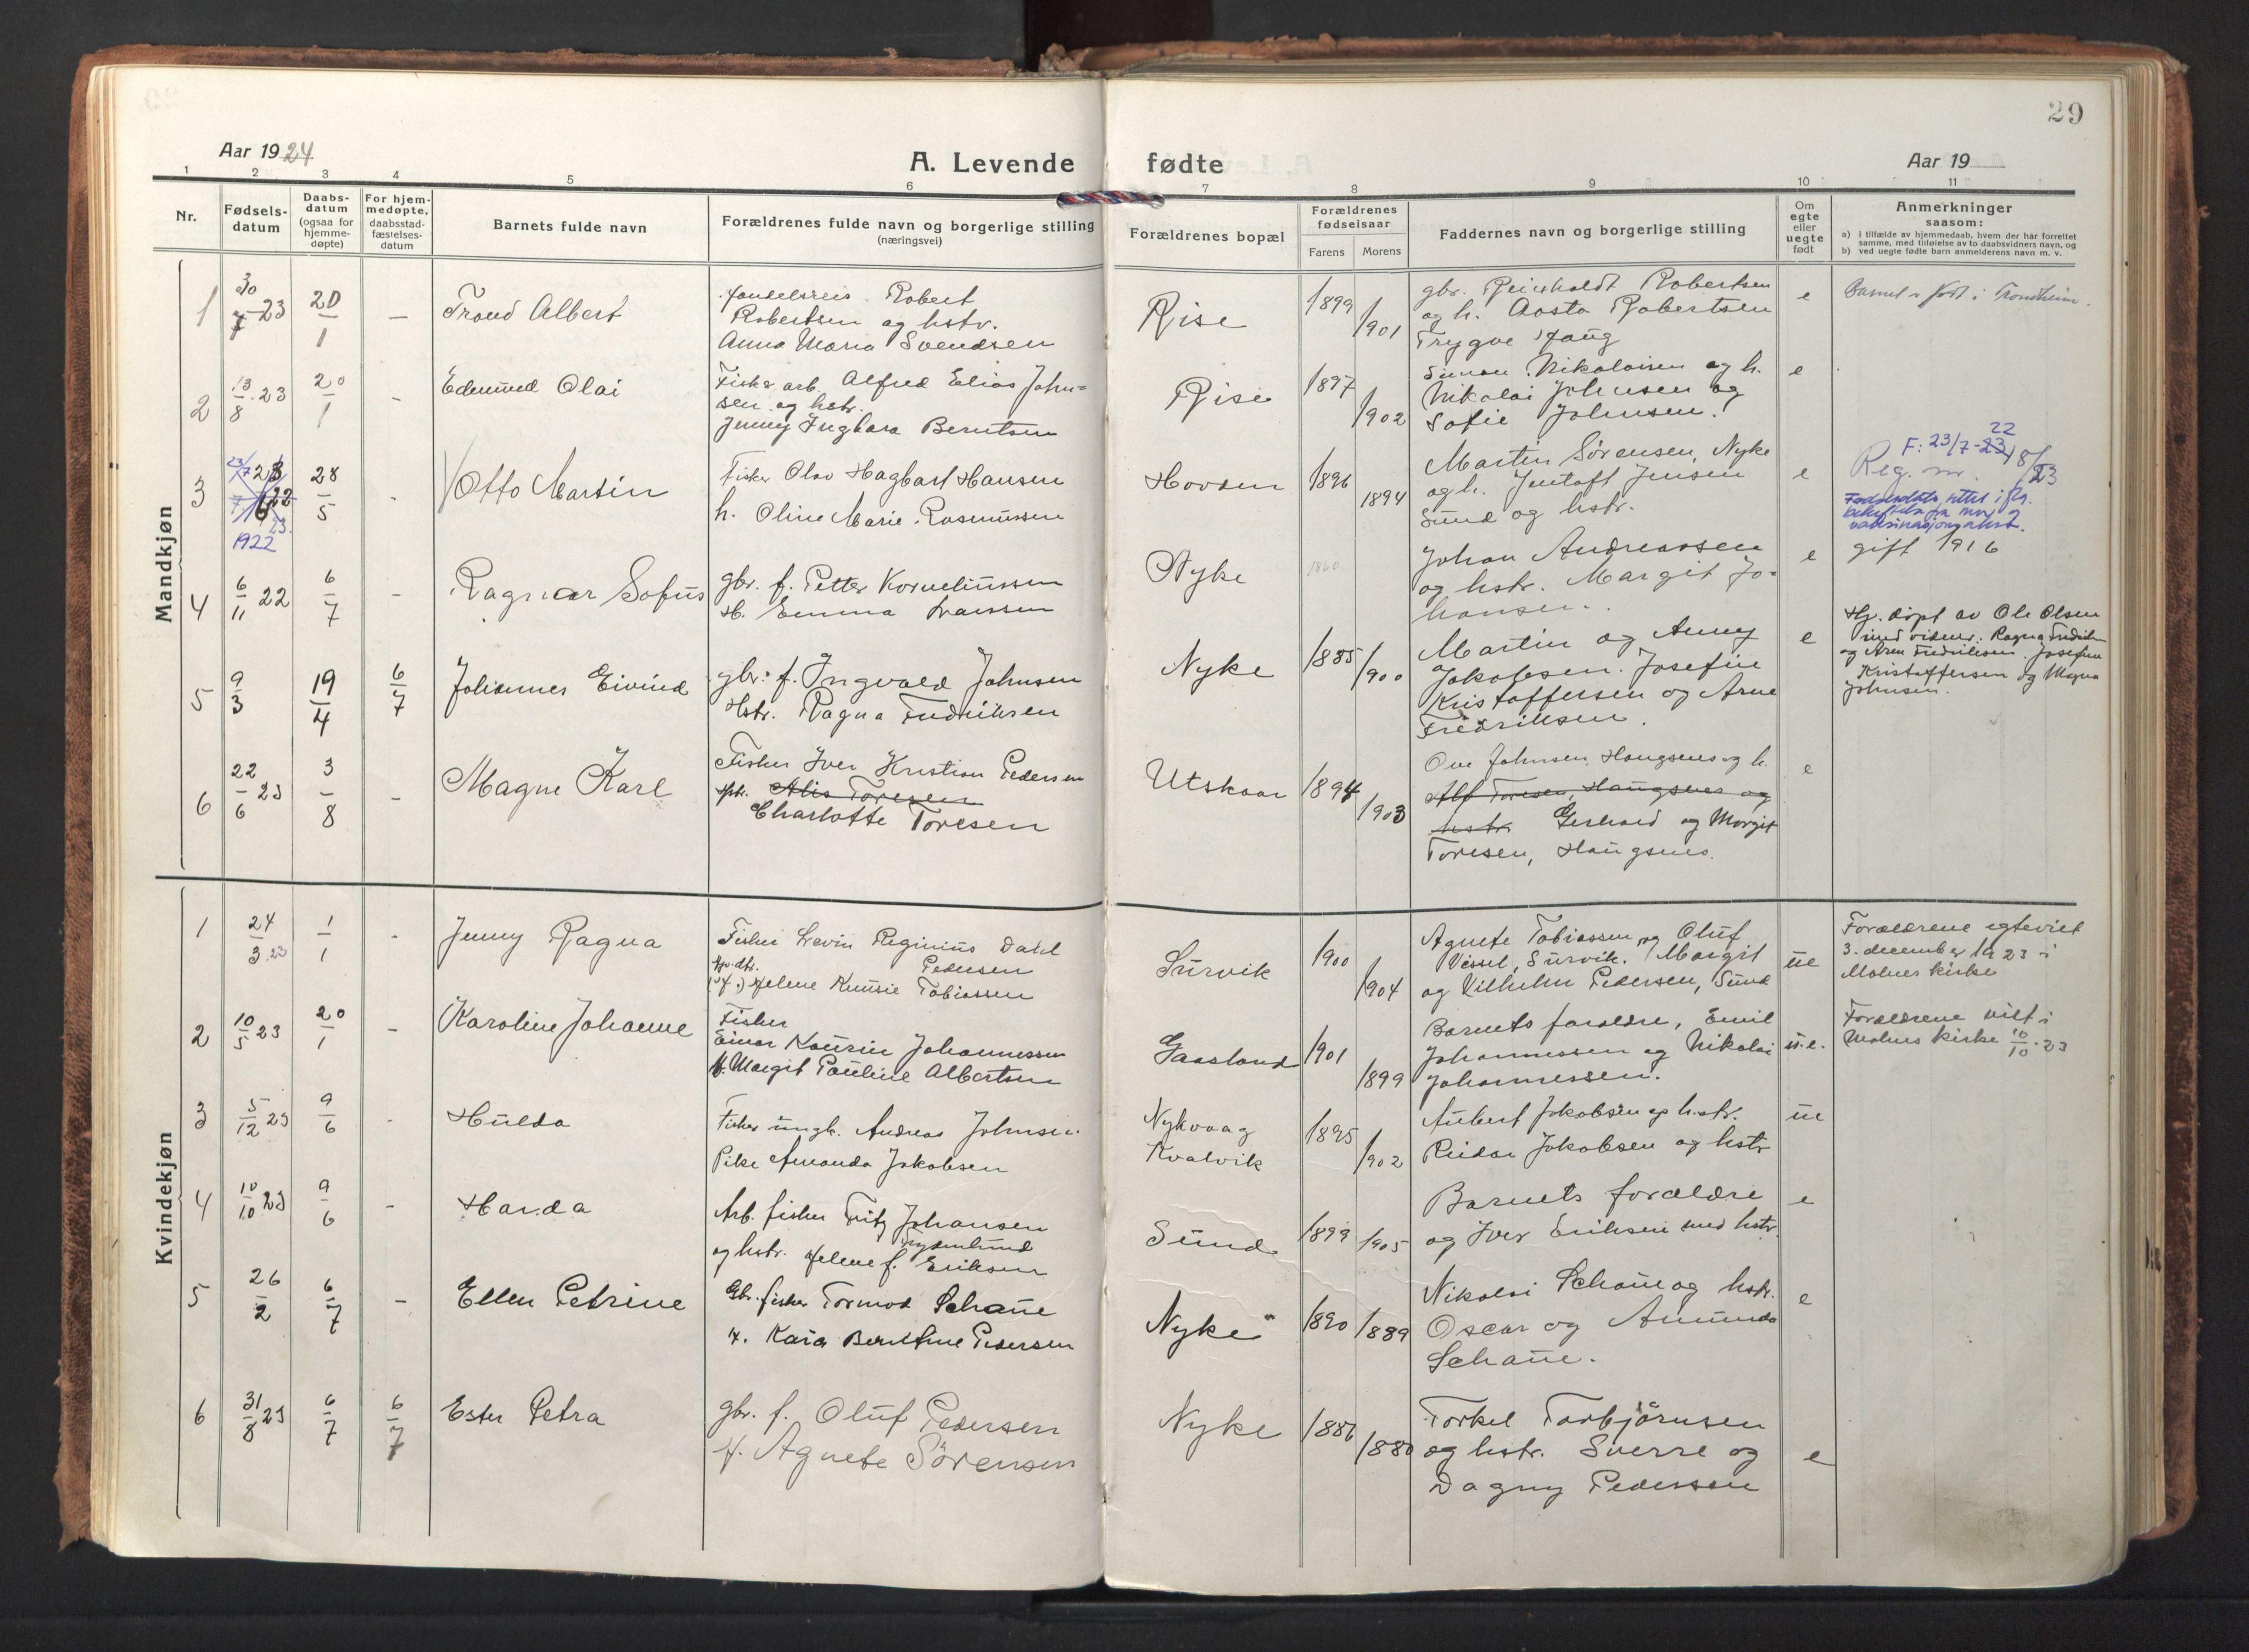 29
Aar 1924
A. Levende fødte
Aar 19
1 2 3 4 5 6 7 8 9 10 11
Nr.
Fødsels-
datum
Daabs-
datum
(ogsaa for
hjemme-
døpte)
For hjem-
medøpte,
daabsstad-
fæstelses-
datum
Barnets fulde navn
Forældrenes fulde navn og borgerlige stilling
(næringsvei)
Forældrenes bopæl
Forældrenes
fødselsaar
Farens Morens
Faddernes navn og borgerlige stilling
Om
egte
eller
uegte
født
Anmerkninger
saasom:
a) i tilfælde av hjemmedaab, hvem der har forrettet
samme, med tilføielse av to daabsvidners navn, og
b) ved uegte fødte barn anmelderens navn m. v.
Mandkjøn
1 30/7 23 20/1 - Trond Albert
Handelsreis. Robert
Robertsen og hstr.
Anna Maria Svendsen
Rise 1899 1901
gbr. Reinholdt Robertsen
og h. Aasta Robertsen
Trygve Haug
e
Barnet er født i Trondheim.
2 13/8 23 20/1 - Edmund Olai
Fisker arb. Alfred Elias John-
sen og hstr.
Jenny Ingbora Berntsen
Rise 1897 1902
Simon Nikolaisen og h.
Nikolai Johnsen og
Sofie Johnsen.
e
3 23/7 23 28/5 - Otto Martin
1922
Fisker Olav Hagbart Hansen
h. Oline Marie Rasmussen
Hovden 1896 1894
Martin Sørensen, Nyke
og h. Jentoft Jensen
Sund og hstr.
e
F: 23/7-23 22
Reg. nr. 18/23
gift 1916
4 6/11 22 6/7 - Ragnar Sofus
gbr. f. Petter Korneliussen
H. Emma Larssen
Nyke 1860
Johan Andreassen
og hstr. Margit Jo-
hansen.
e
5 9/3 19/4 6/7 Johannes Eivind
gbr. f. Ingvald Johnsen
Hstr. Ragna Fredriksen
Nyke 1885 1900
Martin og Anny
Jakobsen. Josefine
Kristoffersen og Arne
Fredriksen.
e
Hj. døpt av Ole Olsen
med vidner: Ragna Fredriksen
og Arne Fredriksen. Josefine
Kristoffersen og Magna
Johnsen.
6 22/6 23 3/8 - Magne Karl
Fisker Iver Kristian Pedersen
Alis Toresen
Charlotte Toresen
Utskaar 1894 1903
Ove Johnsen Haugsnes og h.
Alf Toresen, Haugsnes og
hstr. Gerhard og Margit
Toresen, Haugsnes.
e
Kvindekjøn
1 24/3 23 1/1 - Jenny Ragna
Fisker Levin Reginius Dahl
Pedersen
Helene Kunsie Tobiassen
Survik 1900 1904
Agnete Tobiassen og Oluf
Vessel, Survik. Margit
og Vilhelm Pedersen, Sund
ue
Forældrene egteviet
3. december 1923 i
Malnes kirke
2 10/5 23 20/1 - Karoline Johanne
Fisker
Einar Kaurin Johannessen
H. Margit Pauline Albertsen
Gaasland 1901 1899
Barnets foraldre, Emil
Johannessen og Nikolai
Johannessen.
u.e.
Forældrene viet i
Malnes kirke 10/10 23
3 5/12 23 9/6 - Hulda
Fisker ungk. Andreas Johnsen
Pike Amanda Jakobsen
Nykvaag
Kvalvik
1895 1902
Aubert Jakobsen og hstr.
Reidar Jakobsen og hstr
ue
4 10/10 23 9/6 - Harda
Arb. fisker Fritz Johansen
og hstr. Helene f. Eriksen
Sund 1899 1905
Barnets forældre
og Iver Eriksen med hstr.
e
5 26/2 6/7 - Ellen Petrine
Gbr. fisker Tormod Schane
H. Kaia Bernthine Pedersen
Nyke 1890 1889
Nikolai Schane og hstr.
Oscar og Amunda
Schane.
e
6 31/8 23 6/7 6/7 Ester Petra
gbr. f. Oluf Pedersen
H. Agnete Sörensen
Nyke 1886 1880
Torkel Torbjörnsen
og hstr. Sverre og
Dagny Pederssen
e